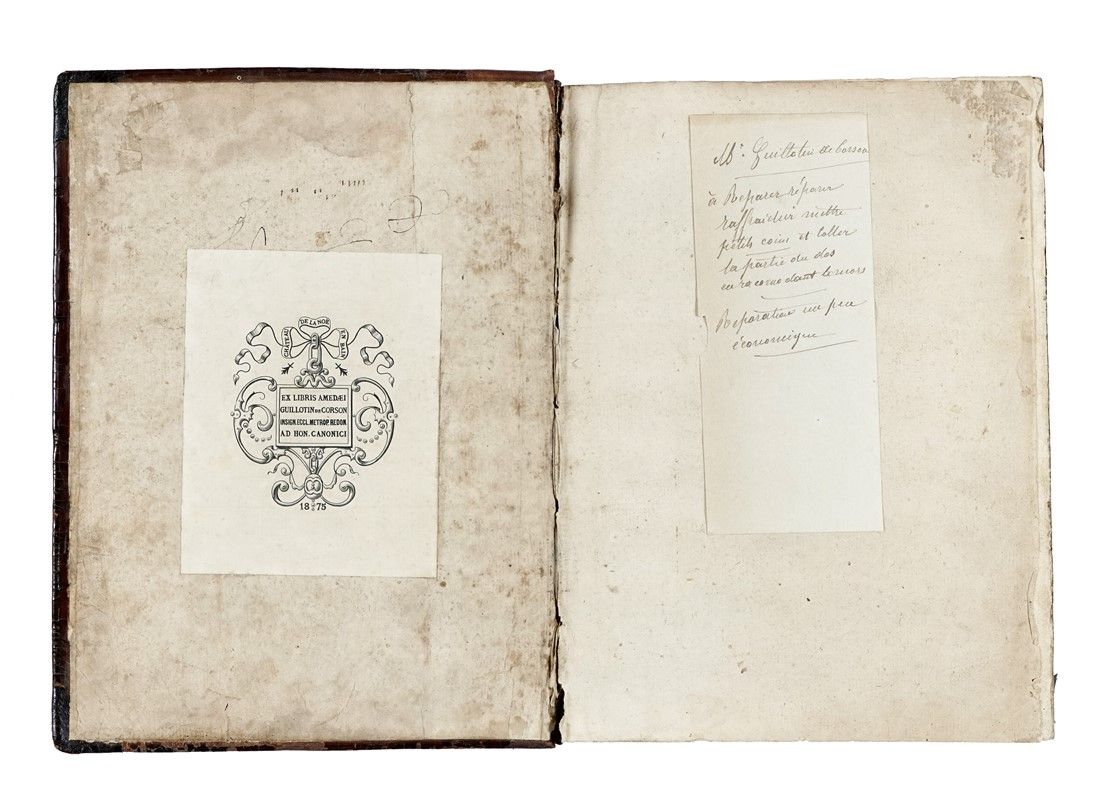 CHÂTEAU DE LA NOË EN BAIN
EX LIBRIS AMEDÆI
GUILLOTIN DE CORSON
INSIGN. ECCL. METROP. REDON
AD HON. CANONICI
1875
Mr. Guillotin de Corson
à Reparer réparer
raffraichir mettre
petits coins et coller
la partie du dos
en racomodant le mors
Reparation un peu
économique